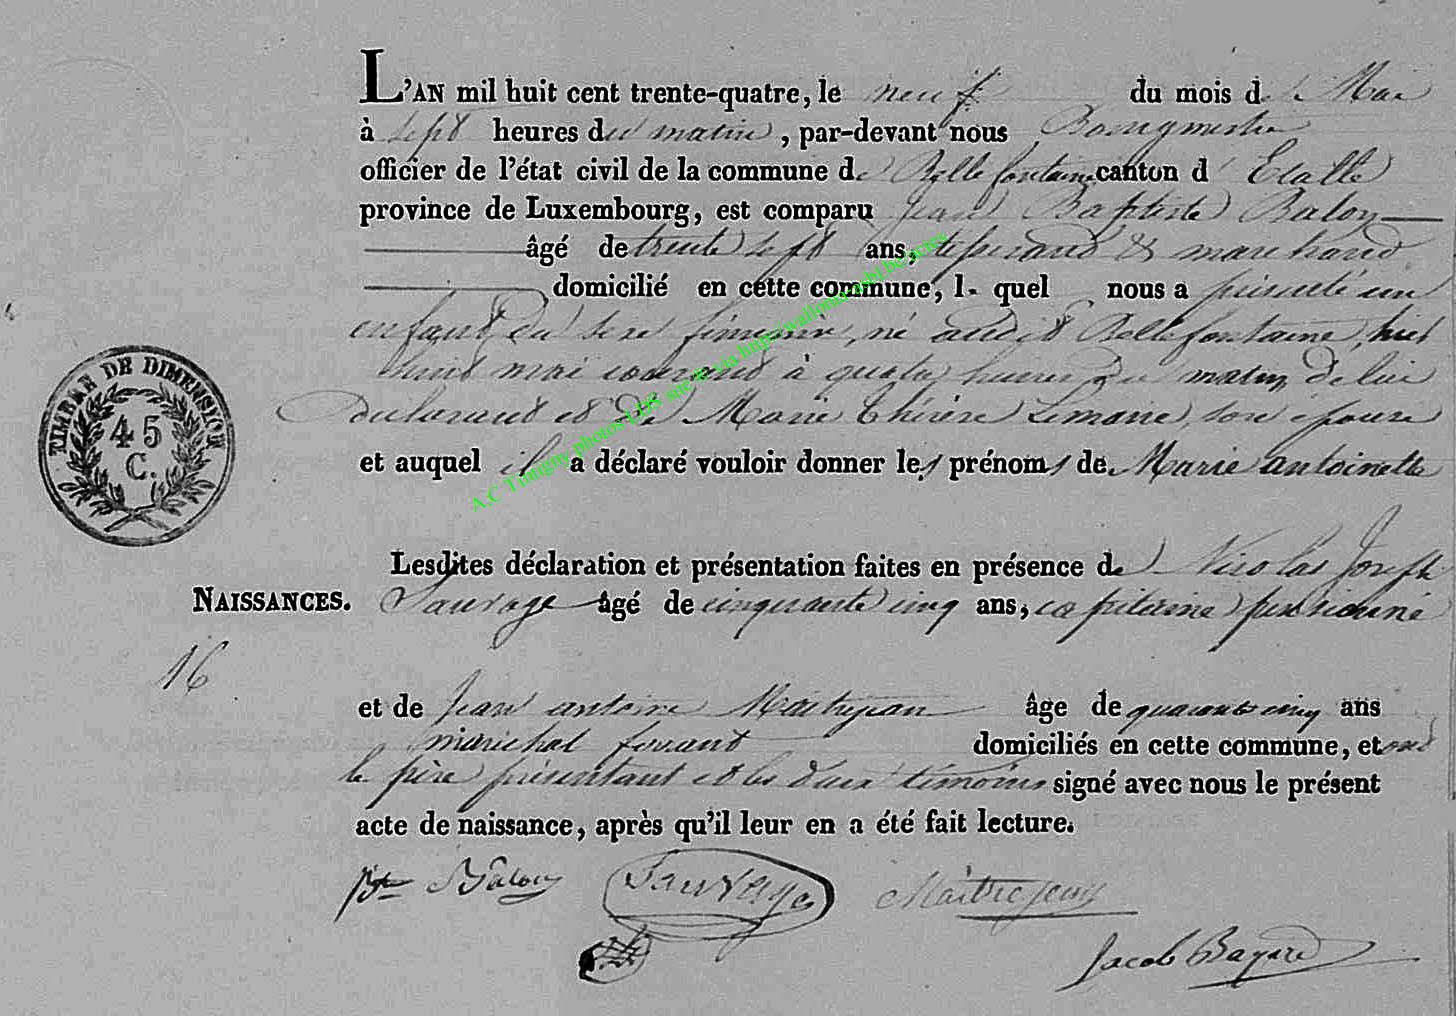 L'AN mil huit cent trente-quatre, le neuf du mois de Mai
à sept heures du matin, par-devant nous Bourgmestre
officier de l'état civil de la commune de Bellefontaine canton d'Etalle
province de Luxembourg, est comparu Jean Baptiste Balon
âgé de trente sept ans, et marchand
domicilié en cette commune, lequel nous a présenté un
enfant du sexe féminin, né audit Bellefontaine, hier
huit mai courant à quatre heures du matin, de lui
déclarant et de Marie Thérèse Lemaire, son épouse
et auquel il a déclaré vouloir donner les prénoms de Marie antoinette
Lesdites déclaration et présentation faites en présence de Nicolas Joseph
NAISSANCES. Sauvage âgé de cinquante cinq ans, capitaine pensionné
16
et de Jean antoine Maitrejean âge de quarante cinq ans
maréchal ferrant domiciliés en cette commune, et ont
le père présentant et les deux témoins signé avec nous le présent
acte de naissance, après qu'il leur en a été fait lecture.
Bte Balon Sauvage Maitrejean
Jacob Bayard
TIMBRE DE DIMENSION
45
C.